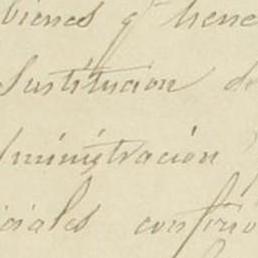 bienes q.e tiene
Sustitucion de
dministración
iciales confirió